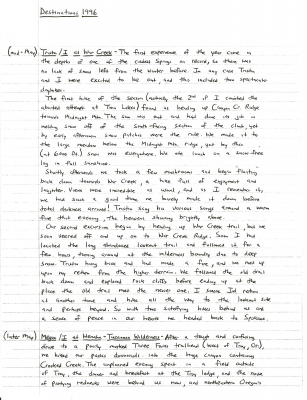 Destinations 1996
(mid-May) Trista / I at Ww Creek - The first experience of the year came in
the depths of one of the coldest Springs on record, so there was
no lack of snow left from the winter before. In any case Trista
and I were excited to be out, and this included two spectacular
dayhikes.
The first hike of the season (actually the 2nd if I counted the
aborted attempt at Twin Lakes) found us heading up Cougar Cr. Ridge
towards Midnight Mtn. The sun was out and had done its job in
melting snow off of the south-facing section of the climb, yet
by early afternoon snow patches were the rule. We made it to
the large meadow below the Midnight Mtn. ridge, yet by then
(at 6000 ft.) snow was everywhere. We ate lunch on a snow-free
log in full sunshine.
Shortly afterwards we took a few mushrooms and began
back down towards Ww Creek, a trip full of enjoyment and
laughter. Views were incredible as usual, and as I remember it,
we had such a good time we barely made it down before
total darkness arrived! Trista sang her various songs around a warm
fire that evening, the heavens shining brightly above.
Our second excursion began by heading up Ww Creek trail, but we
soon veered off and up on to Ww Creek Ridge. Soon I had
reached the long abandoned lookout trail and followed it for a
few hours, turning around at the wilderness boundary due to deep
snow. Trista hung back and had made a fire, and we met up
upon my return from the higher terrain. We followed the old trail
back down and explored rock cliffs before ending up at the
place the old trail met the newer one. I swore I'd return
at another time and hike all the way to the lookout site
and perhaps beyond. So with two satisfying hikes behind us and
a sense of peace in our hearts we headed back to Spokane.
(later May) / I at Wenaha-Tucannon Wilderness - After a tough and confusing
drive to a poorly marked Three Forks trailhead (west of Troy, Or.),
we hiked our packs downhill into the huge canyon containing
Crooked Creek. The unplanned evening spent in a field outside
of Troy, the dinner and breakfast at the Troy lodge and the noise
of partying rednecks were behind us now and northeastern Oregon's